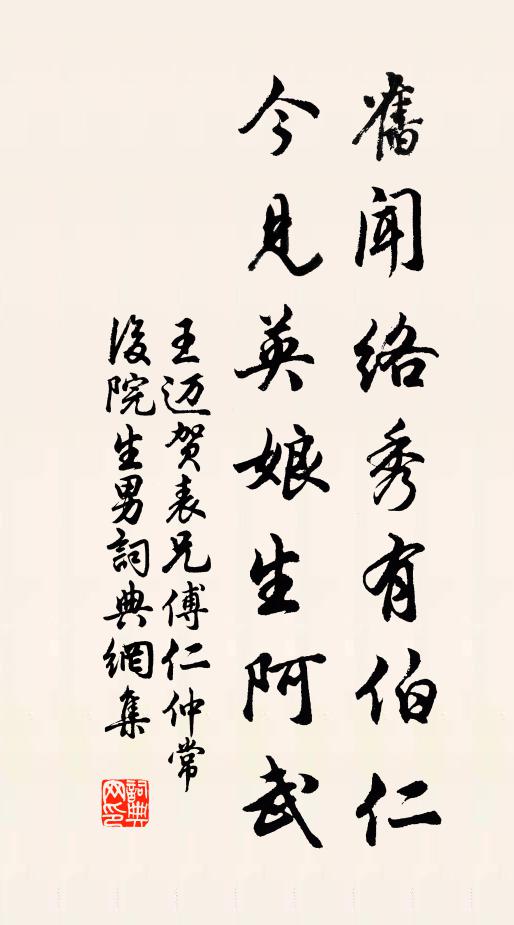 舊聞絡秀有伯仁
今見英娘生阿武
王迈贺表兄傅仁仲常
後院生男詞典網集
詞典网印